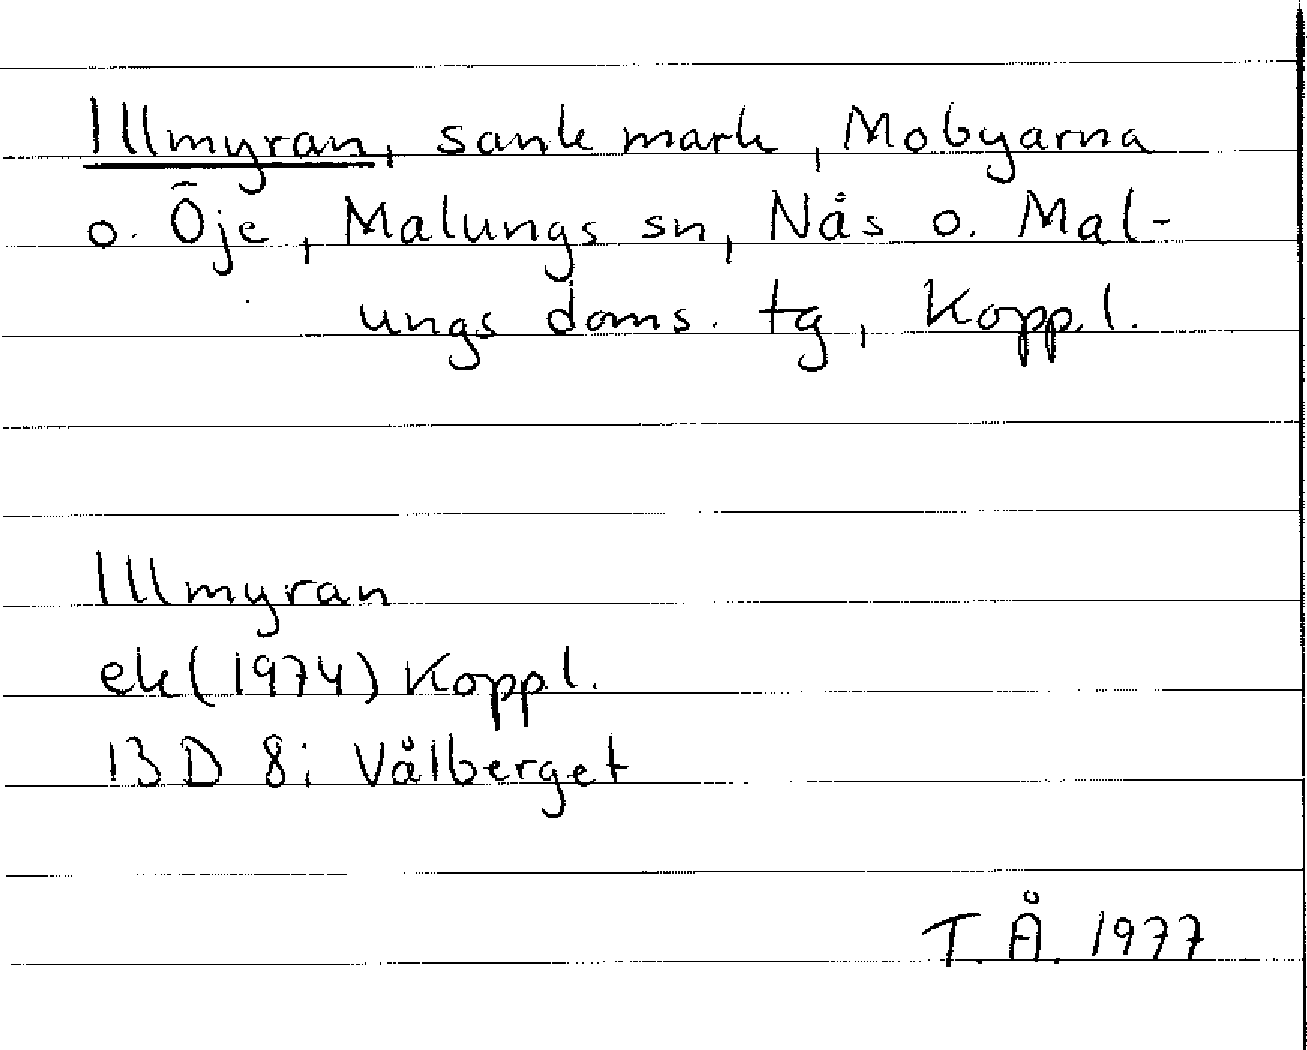 Illmyran, sank mark, Mobyarna
o. Öje, Malungs sn, Nås o. Mal-
ungs doms. tg, Kopp.l.
Illmyran
ek (1974) Kopp.l.
13 D 8i Vålberget
T. Å. 1977